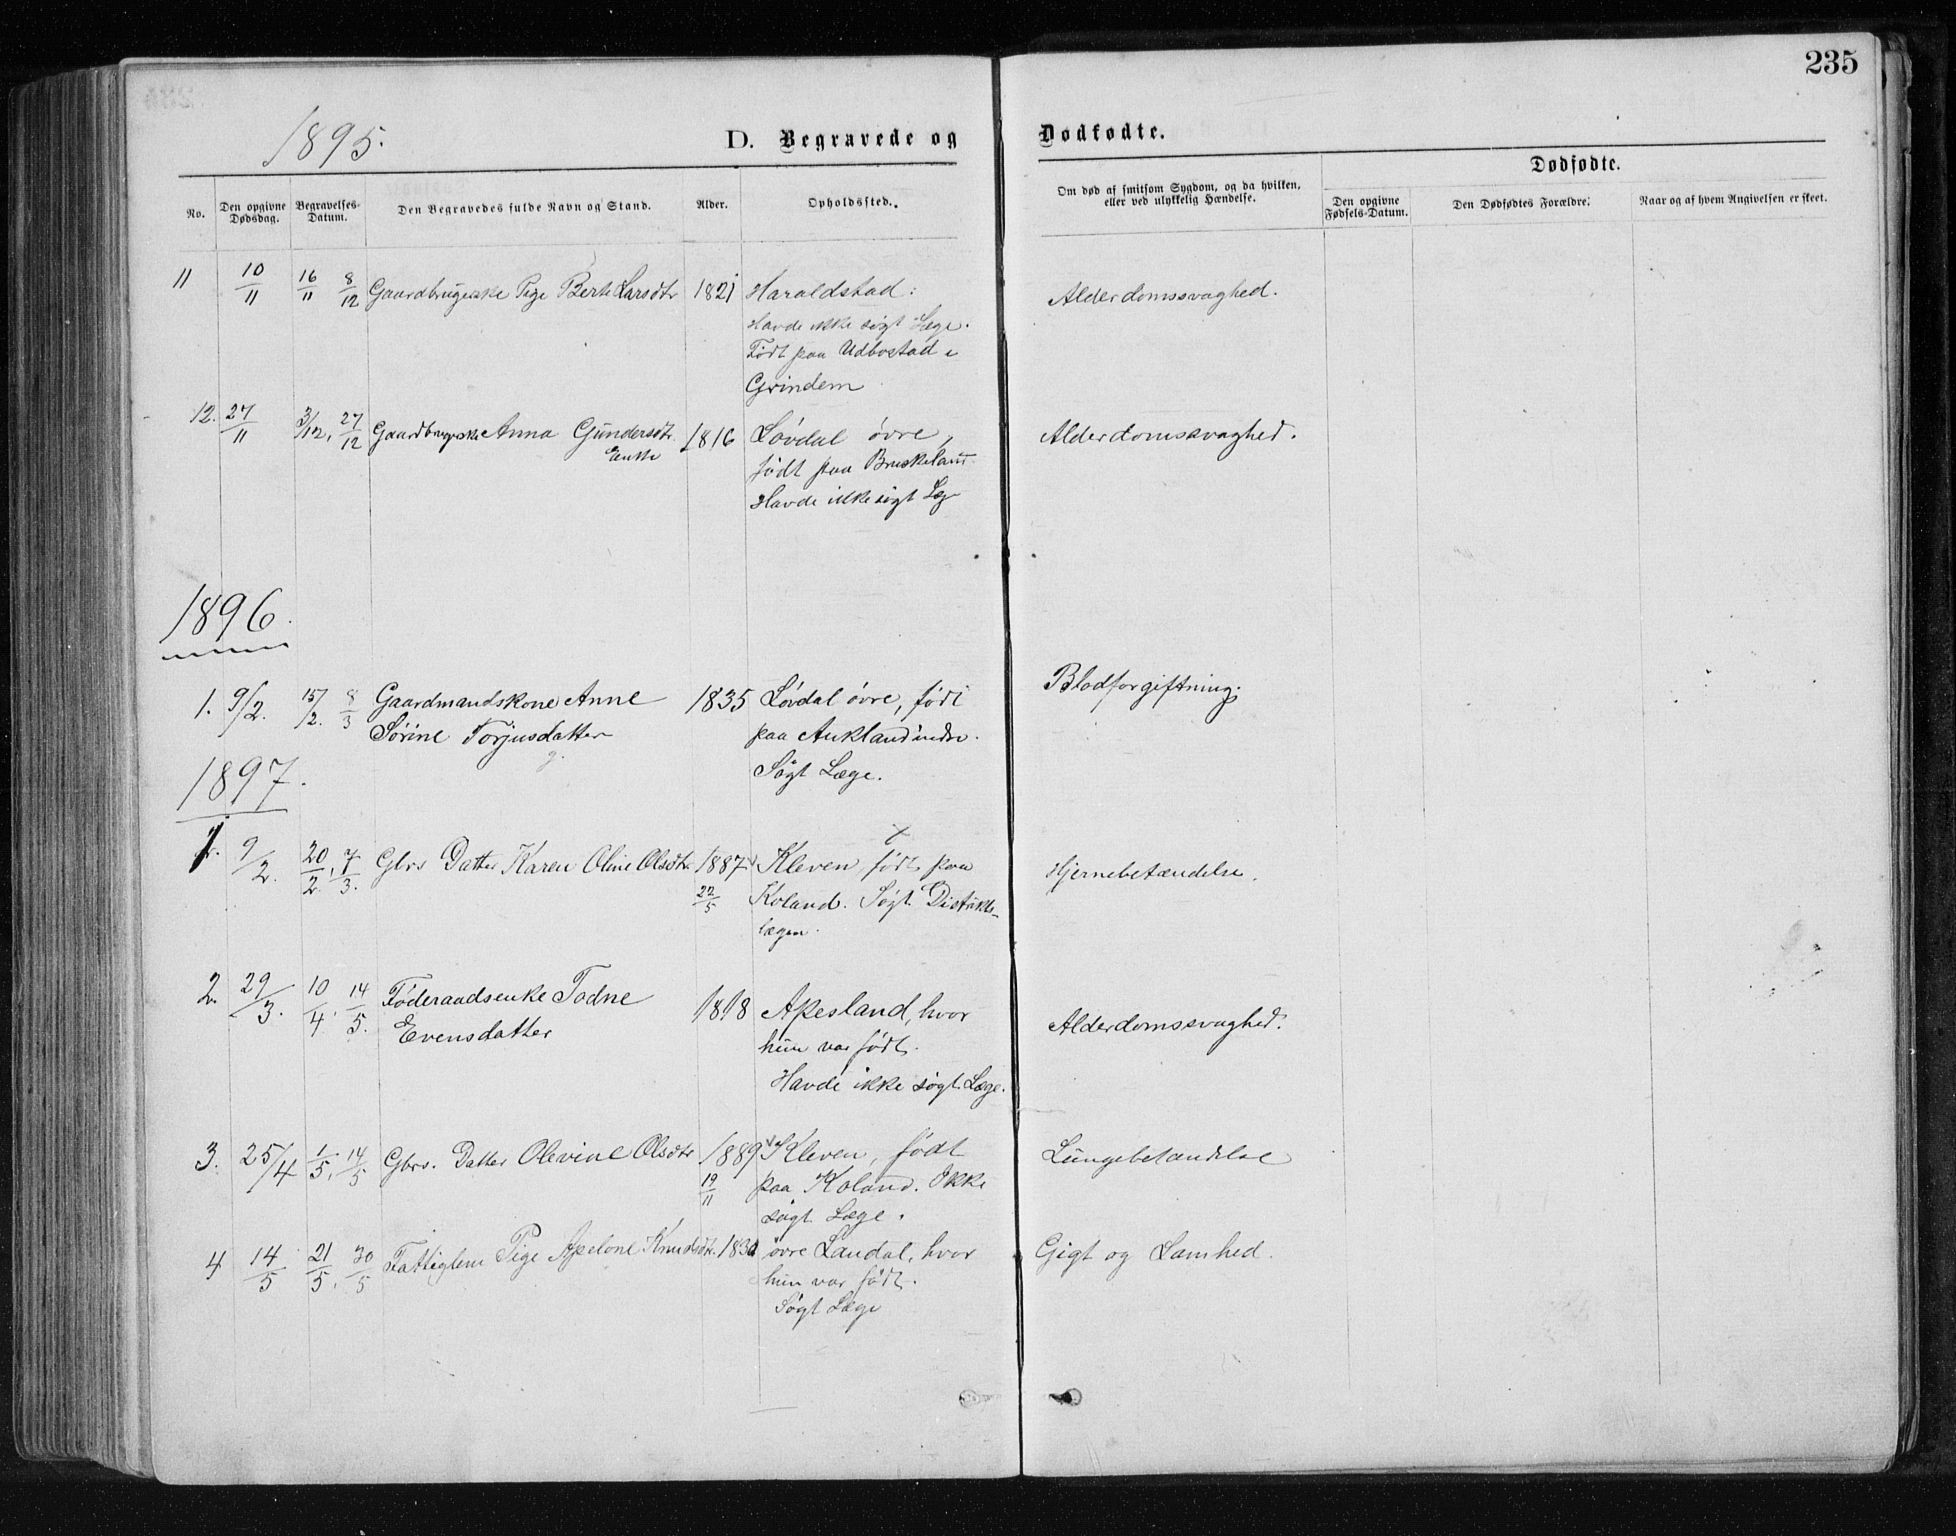 235
1895.
D. Begravede og Dødfødte.
No. Den opgivne Dødsdag. Begravelses-Datum. Den Begravedes fulde Navn og Stand. Alder. Opholdssted. Om død af smitsom Sygdom, og da hvilken, eller ved ulykkelig Hændelse. Dødfødte. Den opgivne Fødsels-Datum. Den Dødfødtes Forældre. Naar og af hvem Angivelsen er skeet.
11 10/11 16/11 8/12 Gaardbrugerske Pige Berte Larsdtr 1821 Haraldstad: Alderdomssvaghed.
Havde ikke søgt Læge.
Født paa Udbostad i
Grindem
12. 27/11 3/12, 27/12 Gaardbrugerske Anna Gundersdtr. 1816 Løvdal øvre, Alderdomssvaghed.
Enke
født paa Bruskeland
Havde ikke søgt Læge
1896.
1. 9/2. 15/2. 8/3 Gaardmandskone Anne 1835 Løvdal øvre, født Blodforgiftning.
Sørine Torjusdatter paa Aukland indre.
Søgt Læge.
1897.
1. 9/2. 20/2, 7/3. Gbrs Datter Karen Oline Olsdtr. 1887 Kleven, født paa Hjernebetændelse.
22/5 Koland. Søgt Distrikts-
lægen.
2. 29/3. 10/4. 14/5. Føderaadsenke Todne 1818 Apesland, hvor Alderdomssvaghed.
Evensdatter hun var født.
Havde ikke søgt Læge.
3. 25/4 1/5, 14/5 Gbrs. Datter Olevine Olsdtr 1889 Kleven, født Lungebetændelse
19/11 paa Koland. Ikke
søgt Læge.
4 14/5 21/5, 30/5 Fattiglem Pige Apelone Knudsdtr. øvre Laudal, hvor Gigt og Lamhed.
hun var født.
Søgt Læge